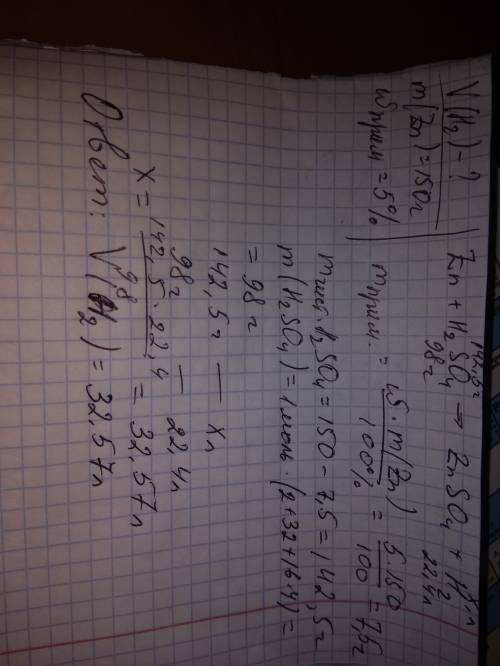 V(H₂) - ?
m(Zn) = 150г
ωприм = 5%
142,5г xл
Zn + H₂SO₄ → ZnSO₄ + H₂
98г 22,4л
mприм. = ω·m(Zn) / 100% = 5·150 / 100 = 7,5г
mчис. H₂SO₄ = 150 - 7,5 = 142,5г
m(H₂SO₄) = 1моль · (2+32+16·4) =
= 98г
142,5г — xл
98г — 22,4л
x = 142,5·22,4 / 98 = 32,57л
Ответ: V(H₂) = 32,57л